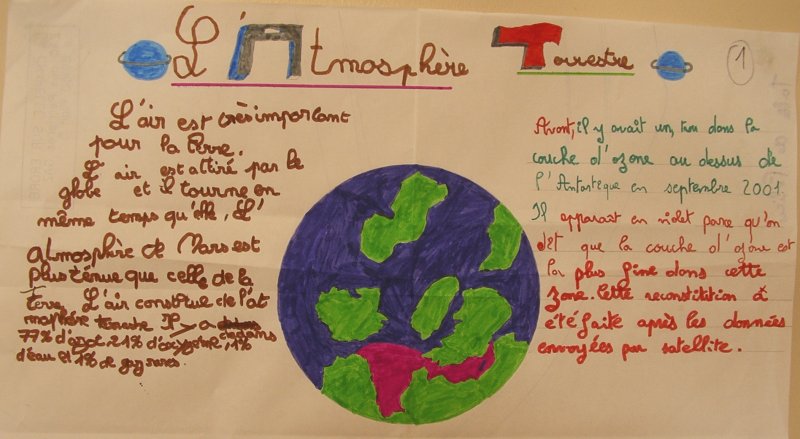 L'Atmosphère Terrestre
1
L'air est très important
pour la terre.
L'air est attiré par le
globe et il tourne en
même temps qu'elle. L'
atmosphère de Mars est
plus ténue que celle de la
terre. L'air constitue de l'at
mosphère terrestre Il y a environs
77% d'azot. 21% d'oxygène, 1%
d'eau et 1% de gaz rares.
Avant, il y avait un trou dans la
couche d'ozone au dessus de
l'Antarteque en septembre 2001
Il apparait en violet parce qu'on
dit que la couche d'ozone est
la plus fine dans cette
zone. Cette reconstitition a
été faite après les données
envoyées par satellite.